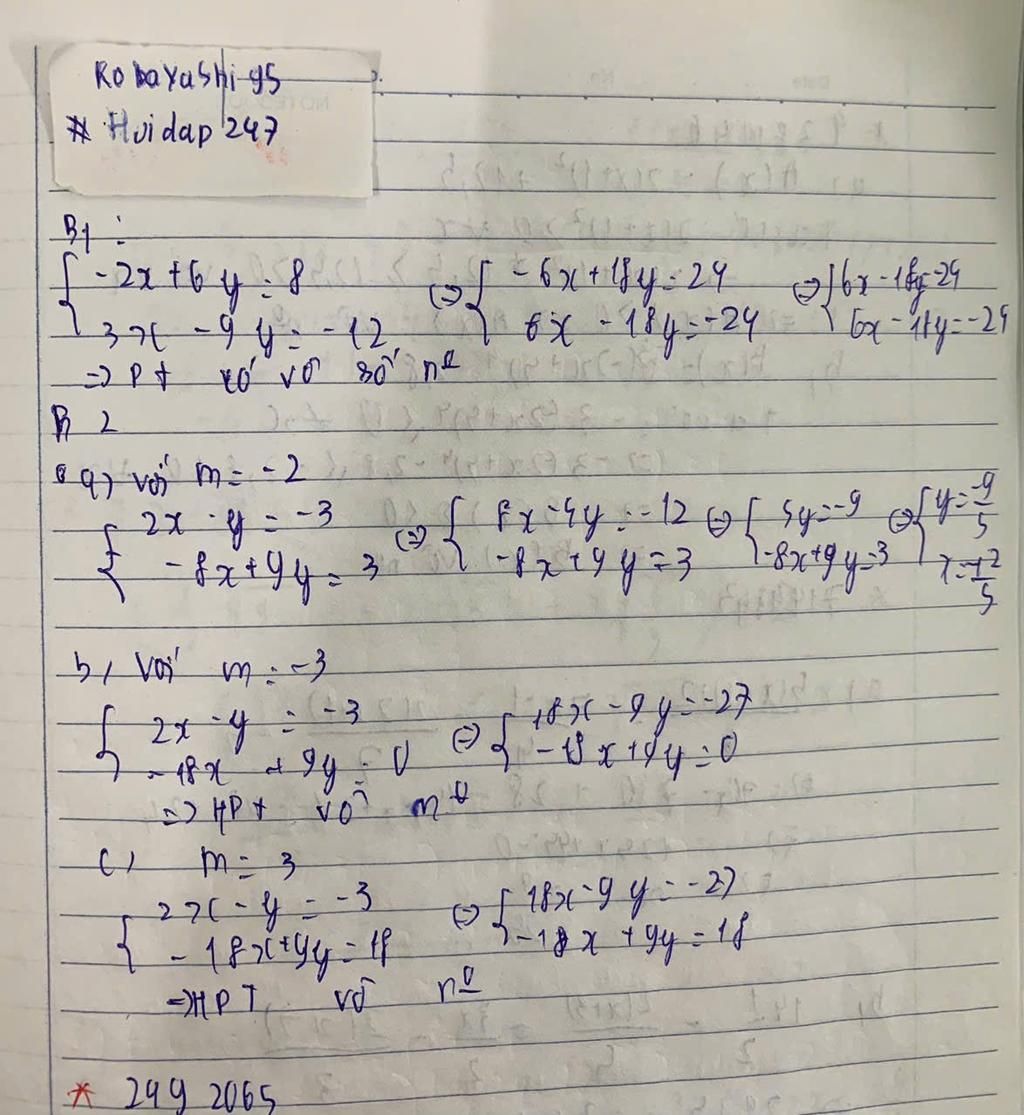 Kobayashi g5
# Hoidap 247
B1 :
{ -2x + 6y = 8 ⇔ { -6x + 18y = 24 ⇔ { 6x - 18y = -24
3x - 9y = -12 6x - 18y = -24 6x - 18y = -24
=> PT có vô số nº
B 2
a) với m = -2
{ 2x - y = -3 ⇔ { 8x - 4y = -12 ⇔ { 5y = -9 ⇔ { y = -9/5
-8x + 9y = 3 -8x + 9y = 3 -8x + 9y = 3 x = -12/5
b, với m = -3
{ 2x - y = -3 ⇔ { 18x - 9y = -27
-18x + 9y = 0 -18x + 9y = 0
=> HPT vô nº
c) m = 3
{ 2x - y = -3 ⇔ { 18x - 9y = -27
-18x + 9y = 18 -18x + 9y = 18
=> HPT vô nº
* 2492065